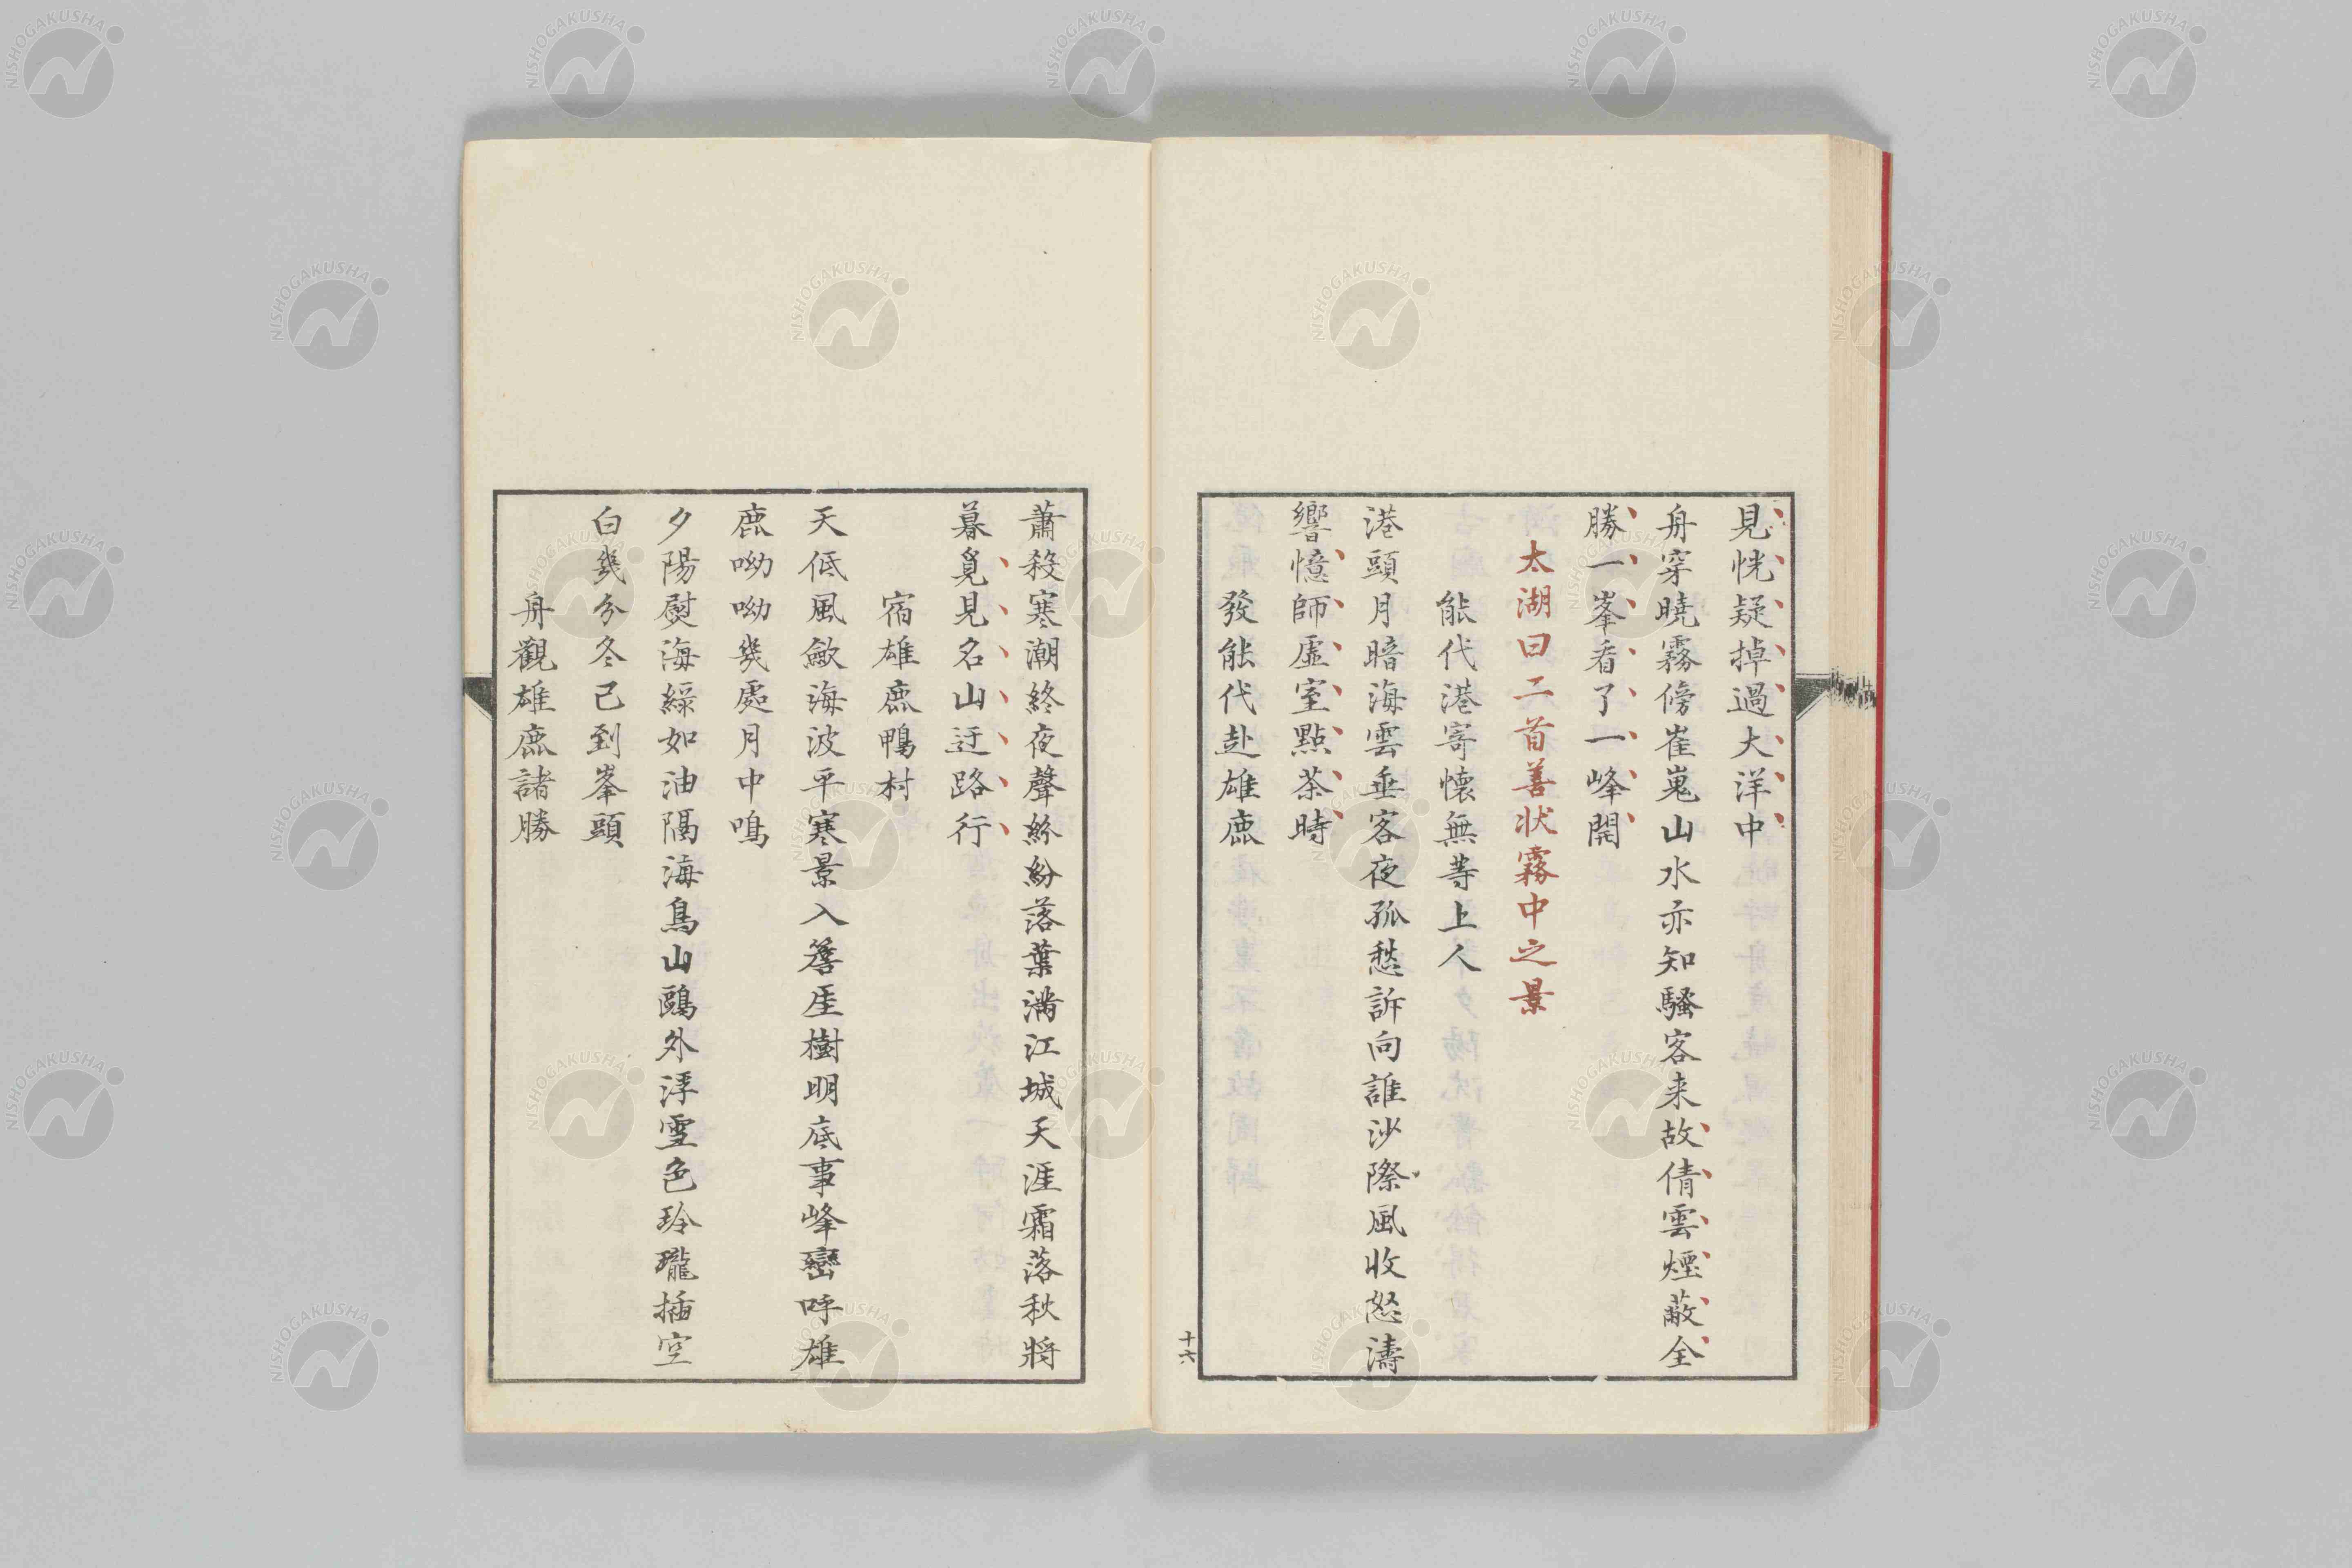 見恍疑掉過大洋中
舟穿曉霧傍崔嵬山水亦知騷客来故倩雲煙蔽全
勝一峯看了一峰開
太湖曰二首善状霧中之景
能代港寄懷無等上人
港頭月暗海雲垂客夜孤愁訴向誰沙際風收怒濤
響憶師虛室點茶時
發能代赴雄鹿
十六
蕭殺寒潮終夜聲紛紛落葉滿江城天涯霜落秋將
暮覓見名山迂路行
宿雄鹿鴨村
天低風歛海波平寒景入簷厓樹明底事峰巒呼雄
鹿呦呦幾處月中鳴
夕陽熨海綠如油隔海鳥山鷗外浮雪色玲瓏插空
白幾分冬已到峯頭
舟觀雄鹿諸勝
NISHOGAKUSHA